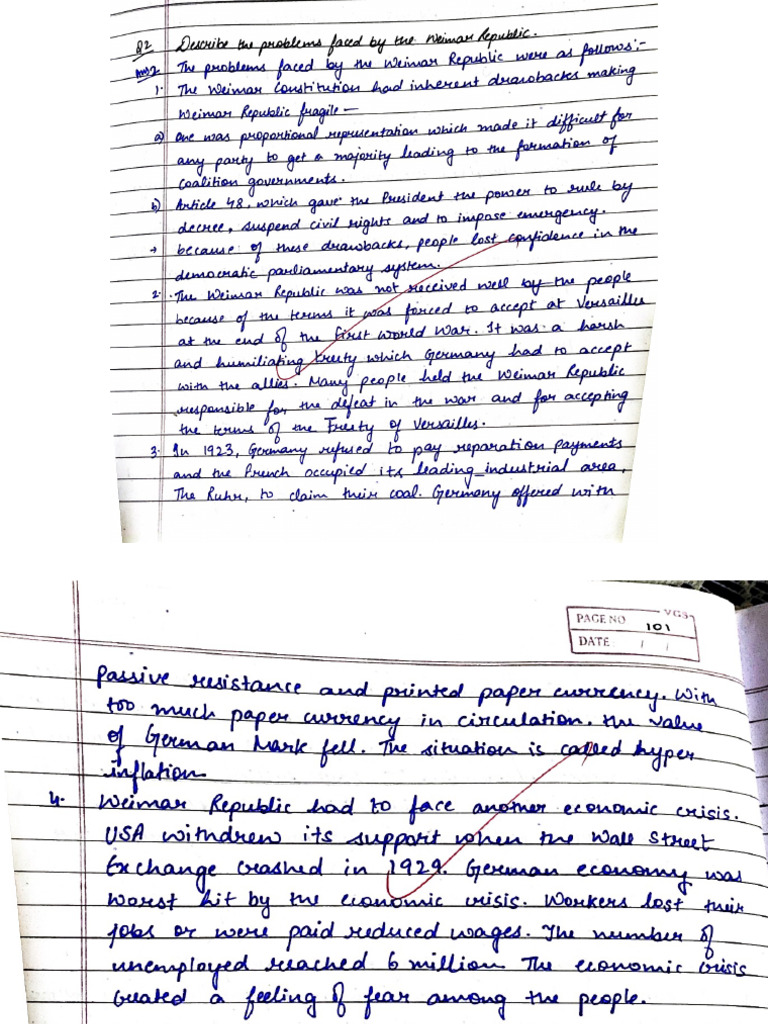 Q2 Describe the problems faced by the Weimar Republic.
Ans2. The problems faced by the Weimar Republic were as follows:-
1. The Weimar Constitution had inherent drawbacks making
Weimar Republic fragile —
a) One was proportional representation which made it difficult for
any party to get a majority leading to the formation of
coalition governments.
b) Article 48, which gave the President the power to rule by
decree, suspend civil rights and to impose emergency.
→ because of these drawbacks, people lost confidence in the
democratic parliamentary system.
2. The Weimar Republic was not received well by the people
because of the terms it was forced to accept at Versailles
at the end of the First World War. It was a harsh
and humiliating treaty which Germany had to accept
with the allies. Many people held the Weimar Republic
responsible for the defeat in the war and for accepting
the terms of the Treaty of Versailles.
3. In 1923, Germany refused to pay reparation payments
and the French occupied its leading industrial area,
The Ruhr, to claim their coal. Germany offered with
VGS
PAGE NO 101
DATE / /
passive resistance and printed paper currency. With
too much paper currency in circulation. the value
of German Mark fell. The situation is called hyper
inflation
4. Weimar Republic had to face another economic crisis.
USA withdrew its support when the Wall Street
Exchange crashed in 1929. German economy was
worst hit by the economic crisis. Workers lost their
jobs or were paid reduced wages. The number of
unemployed reached 6 million The economic crisis
created a feeling of fear among the people.